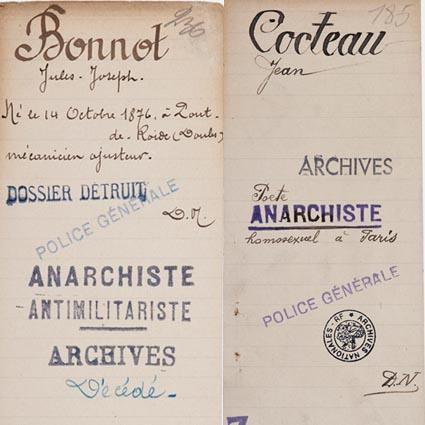 936
Bonnot
Jules-Joseph.
Né le 14 Octobre 1876, à Pont-
de-Roide (Doubs)
mécanicien ajusteur.
DOSSIER DÉTRUIT
D.N.
POLICE GÉNÉRALE
ANARCHISTE
ANTIMILITARISTE
ARCHIVES
Décédé.
185
Cocteau
Jean
ARCHIVES
Poete
ANARCHISTE
homosexuel à Paris
POLICE GÉNÉRALE
ARCHIVES NATIONALES - RF
D.N.